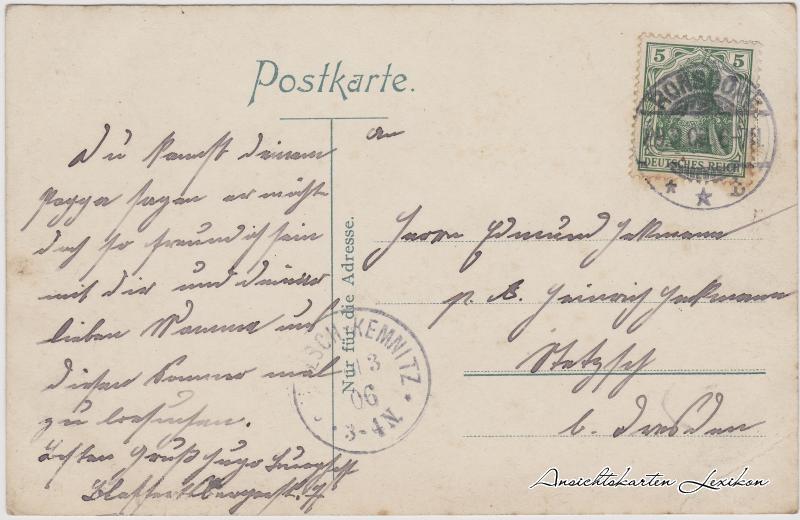 Postkarte.
5 5
DEUTSCHES REICH
RONSDORF
Du kannst deinem
Pappa sagen er möchte
doch so freundlich sein
mit dir und deiner
lieben Mamma uns
diesen Sommer mal
zu besuchen.
Besten Gruß Hugo
An
Herrn Edmund Hekmann
p. A. Heinrich Hekmann
Stetzsch
b. Dresden
Nur für die Adresse.
KEMNITZ
13
06
3-4N
Ansichtskarten Lexikon